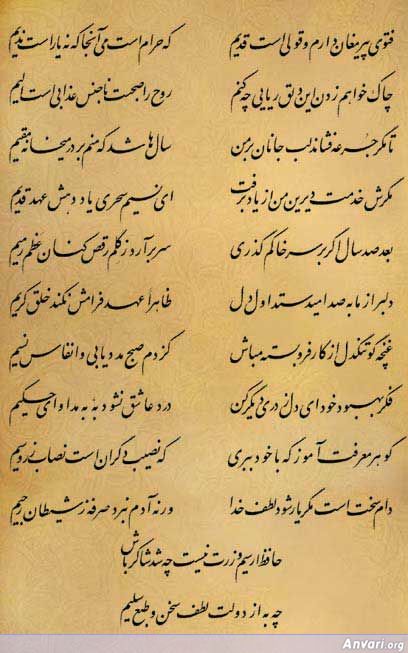 فتوی پیر مغان دارم و قولی است قدیم که حرام است می آنجا که نه یار است ندیم
چاک خواهم زدن این دلق ریایی چه کنم روح را صحبت ناجنس عذابی است الیم
تا مگر جرعه فشاند لب جانان بر من سال‌ها شد که منم بر در میخانه مقیم
مگرش خدمت دیرین من از یاد برفت ای نسیم سحری یاد دهش عهد قدیم
بعد صد سال اگر بر سر خاکم گذری سر برآرد ز گلم رقص کنان عظم رمیم
دلبر از ما به صد امید ستد اول دل ظاهراً عهد فرامش نکند خلق کریم
غنچه گو تنگدل از کار فروبسته مباش کز دم صبح مدد یابی و انفاس نسیم
فکر بهبود خود ای دل ز دری دیگر کن درد عاشق نشود به به مداوای حکیم
گوهر معرفت آموز که با خود ببری که نصیب دگران است نصاب زر و سیم
دام سخت است مگر یار شود لطف خدا ورنه آدم نبرد صرفه ز شیطان رجیم
حافظ ار سیم و زرت نیست چه شد شاکر باش
چه به از دولت لطف سخن و طبع سلیم
Anvari.org